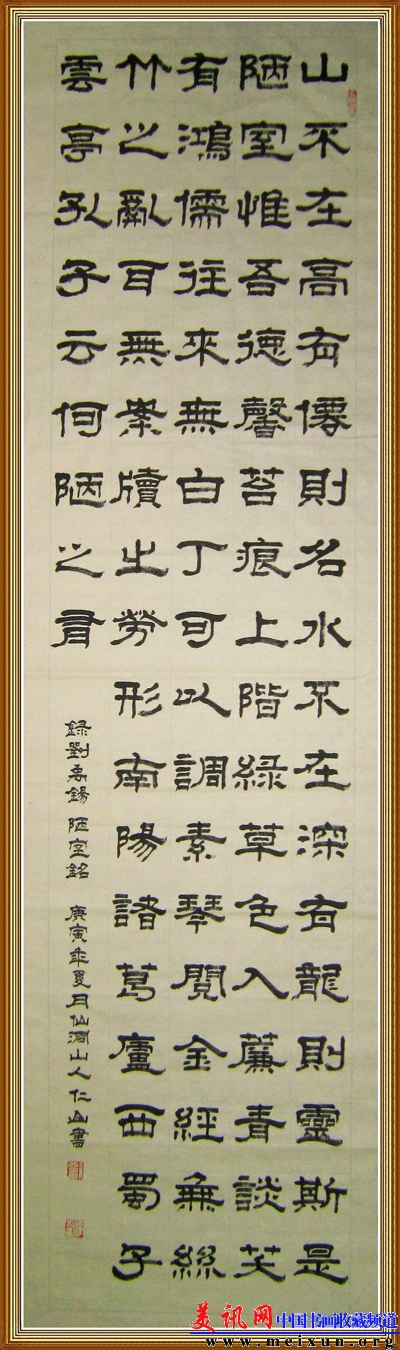 山不在高有僊則名水不在深有龍則靈斯是
陋室惟吾德馨苔痕上階綠草色入簾青談笑
有鴻儒往來無白丁可以調素琴閱金經無絲
竹之亂耳無案牘之勞形南陽諸葛廬西蜀子
雲亭孔子云何陋之有
錄劉禹錫陋室銘 庚寅年夏月仙洞山人仁山書
美讯网中国书画收藏频道
www.meixun.org